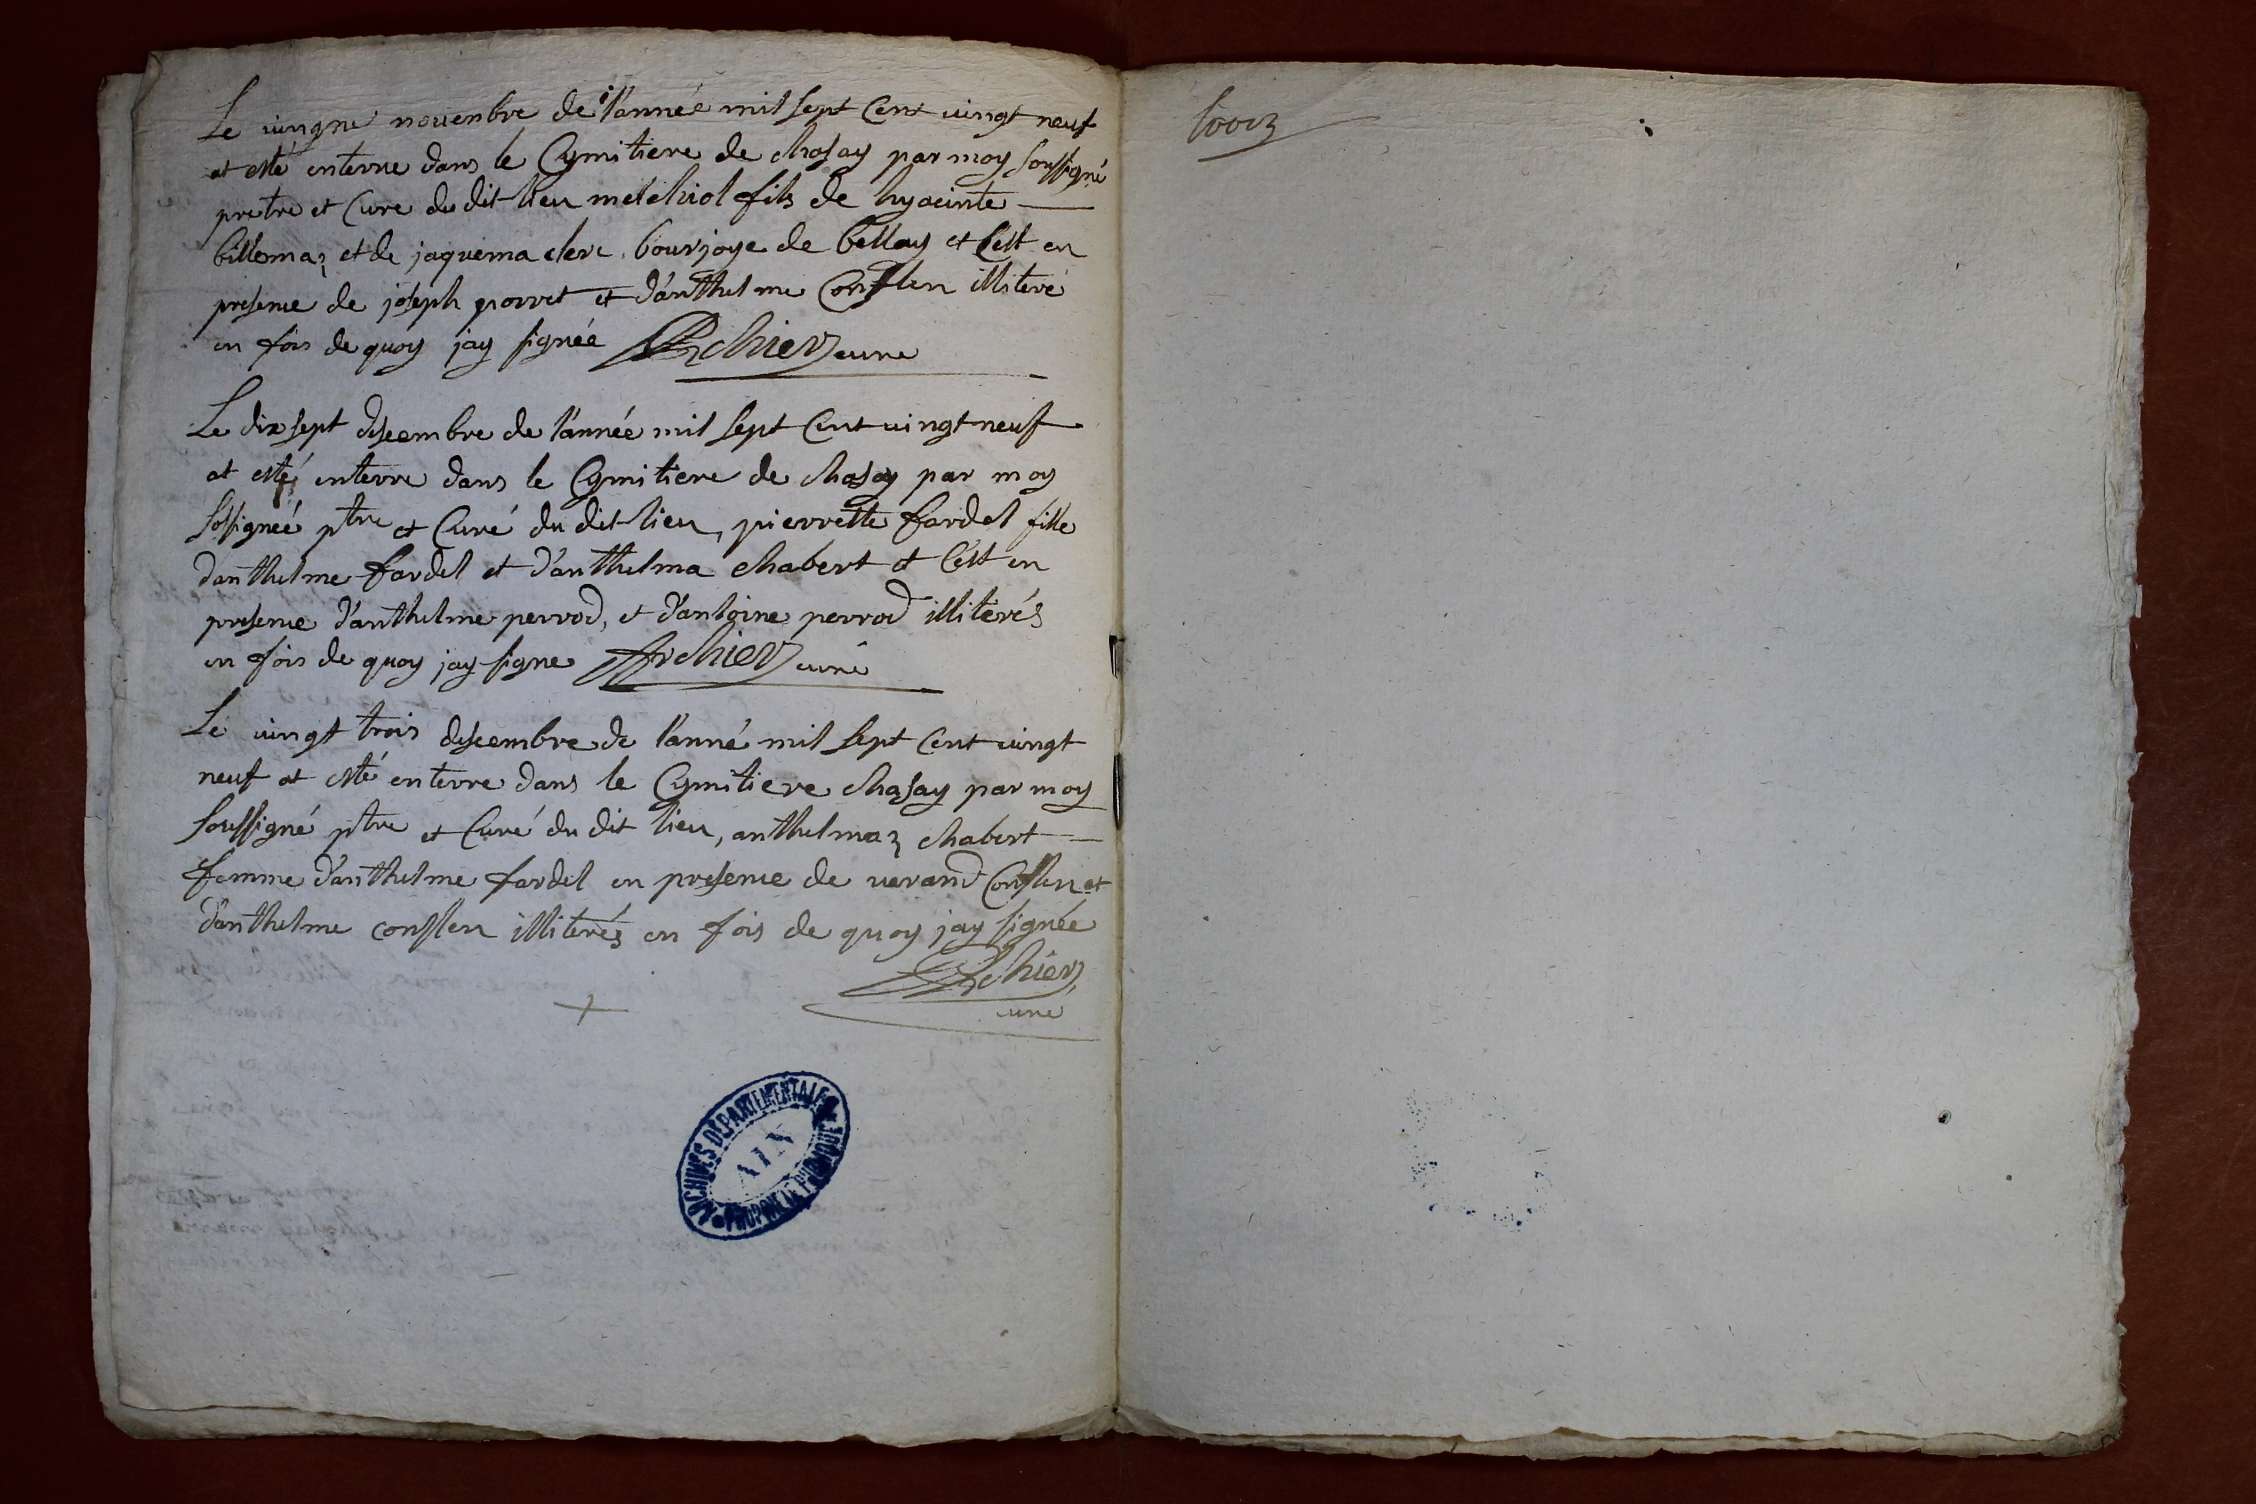 Le vingne novenbre de l'année mil sept cent vingt neuf
at esté enterre dans le Cymitiere de chasay par moy soussigné
pretre et Cure du dit lieu melchiol fils de hyacinte
billomaz et de jaquema clerc bourjoye de bellay et cest en
presence de joseph porret et d'anthelme Conflen illiteré
en fois de quoy jay signée Archier cure
Le dix sept descembre de l'année mil sept Cent vingt neuf
at esté enterre dans le Cymitiere de chasay par moy
Sossigneé ptre et Curé du dit lieu, pierrette fardel fille
danthelme fardel et d'anthelma chabert et Cest en
presence d'anthelme perrod, et d'antoine perrod illiterés
en fois de quoy jay signe Archier curé
Le vingt trois descembre de l'anné mil sept Cent vingt
neuf at esté enterre dans le Cymitiere chasay par moy
soussigné ptre et Curé du dit lieu, anthelmaz chabert
femme d'anthelme fardel en presence de verand Conflen et
d'anthelme conflen illiterés en fois de quoy jay signée
Archier
cure
ARCHIVES DÉPARTEMENTALES
AIN
PROPRIÉTÉ PUBLIQUE